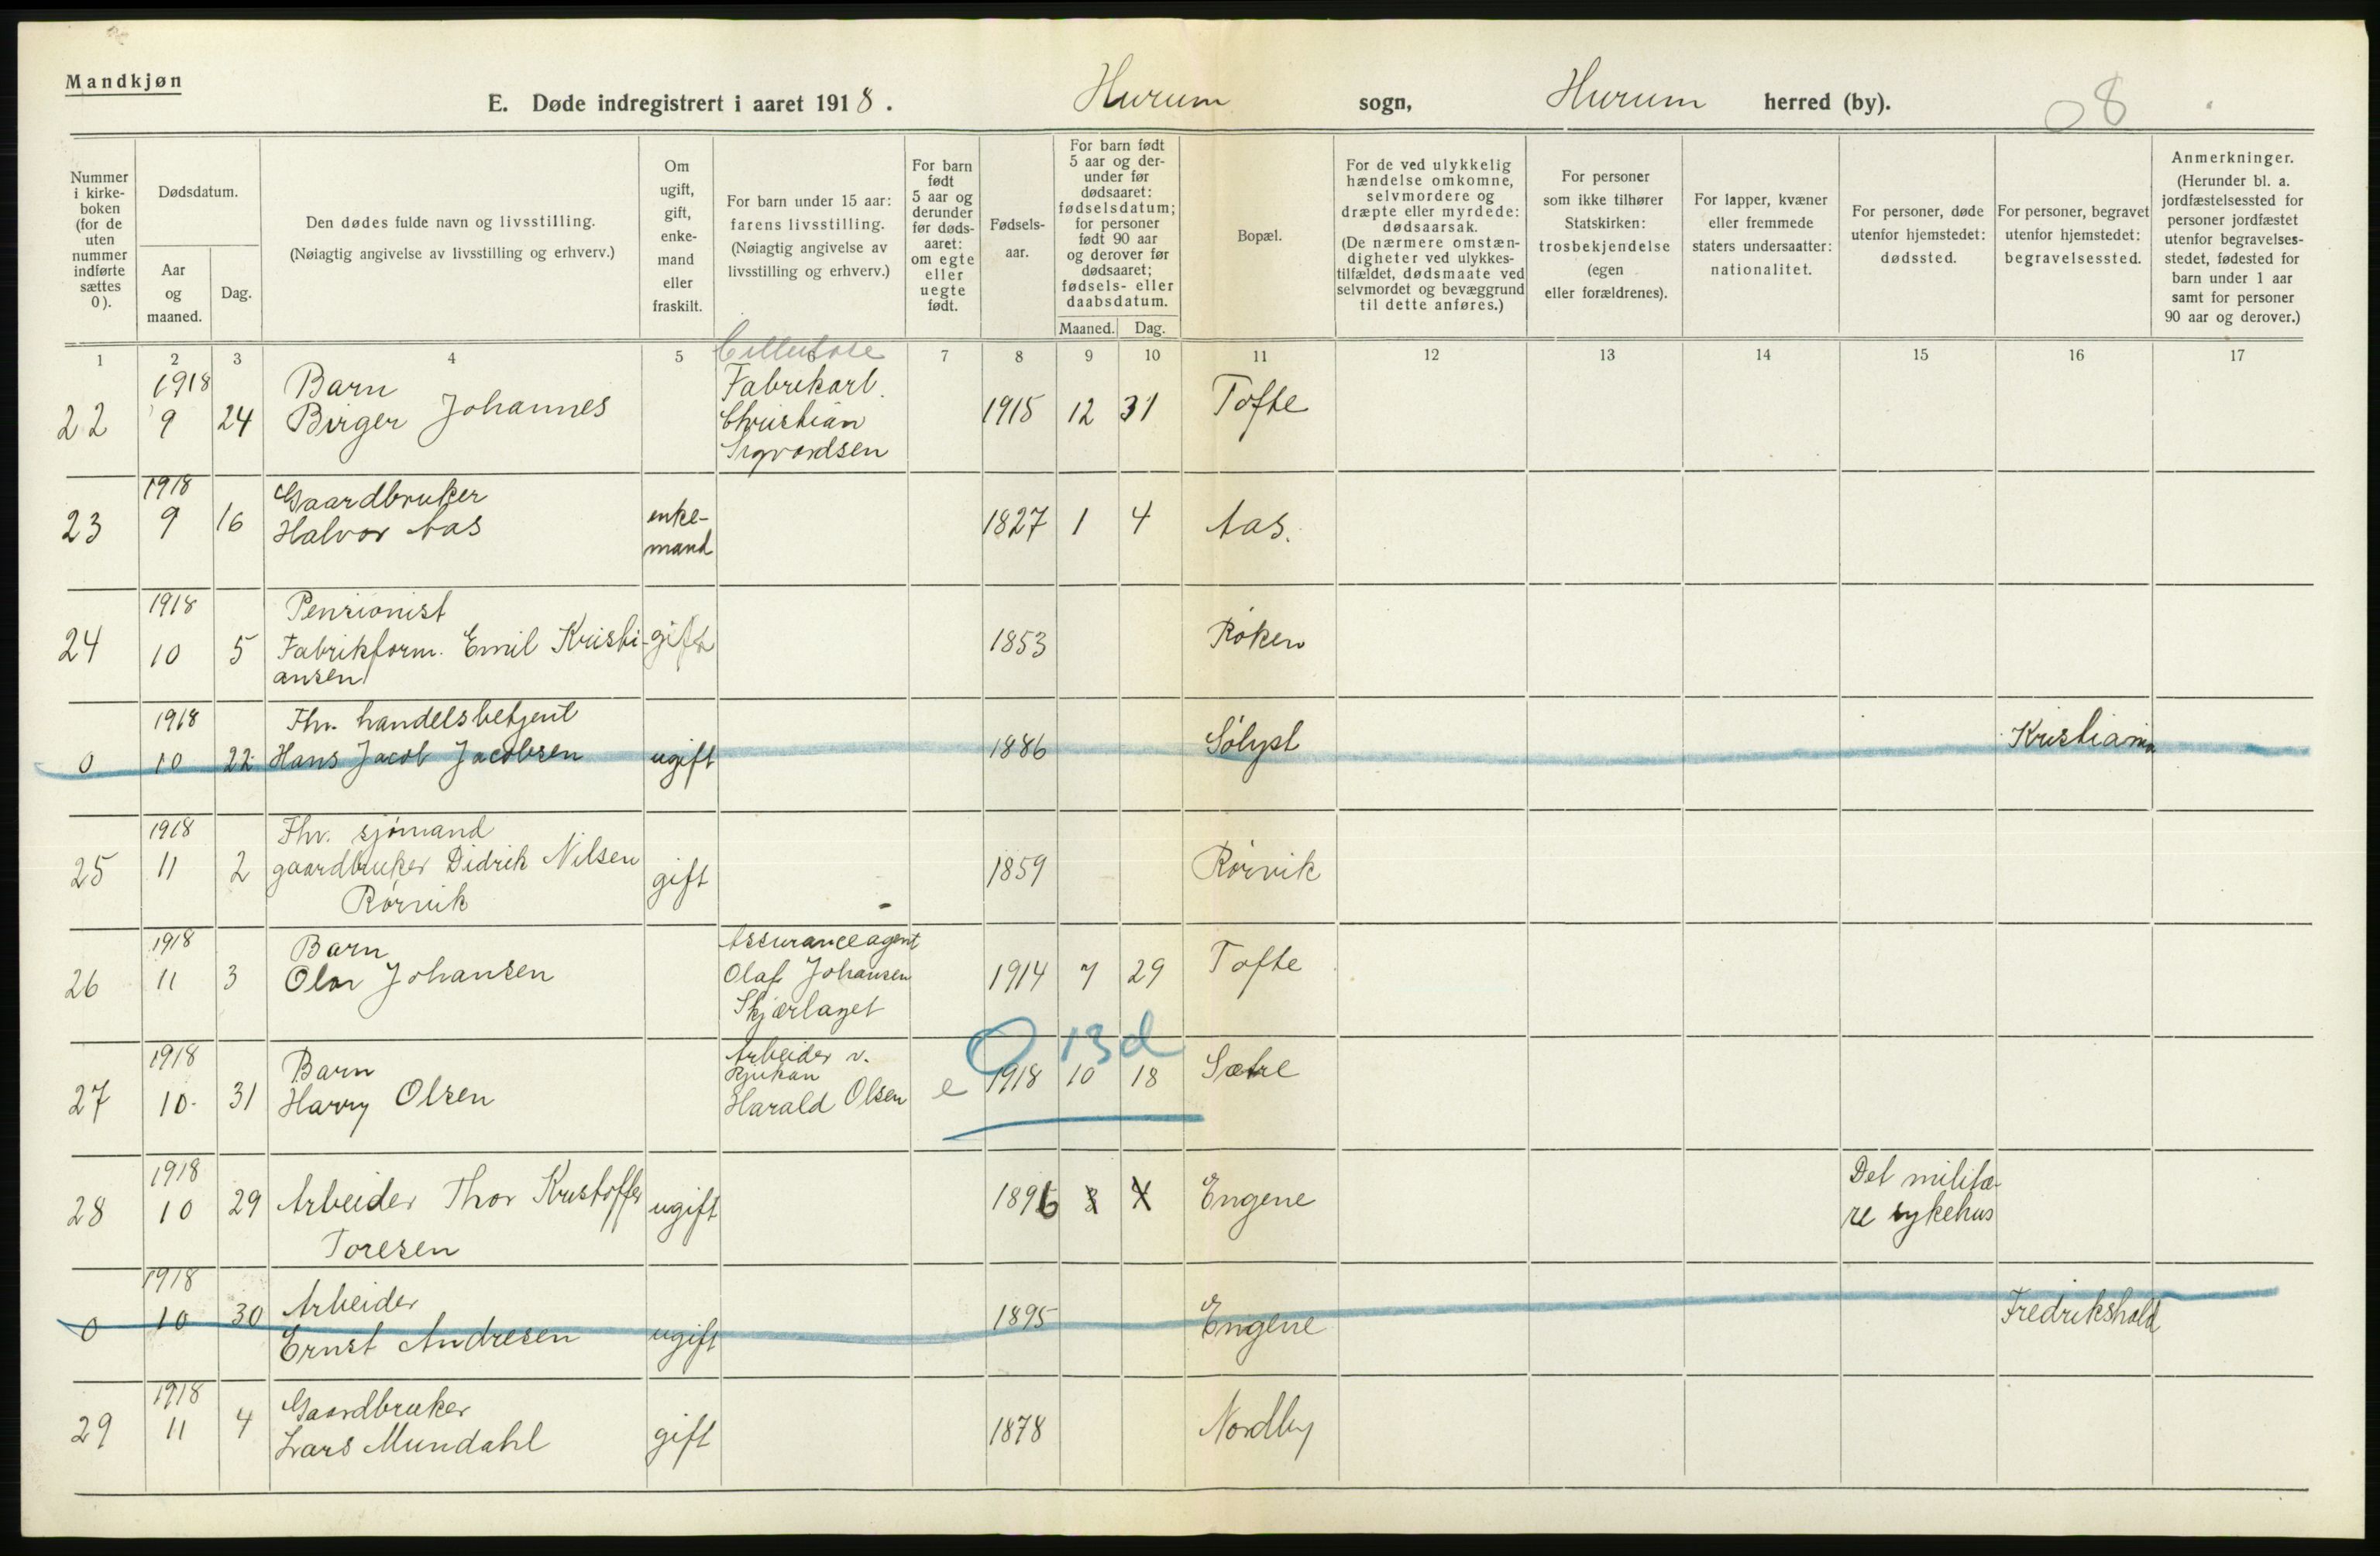 Mandkjøn
E. Døde indregistrert i aaret 1918. Hurum sogn, Hurum herred (by). 08
Nummer i kirke-boken (for de uten nummer indførte sættes 0).
Dødsdatum.
Aar og maaned.
Dag.
Den dødes fulde navn og livsstilling.
(Nøiagtig angivelse av livsstilling og erhverv.)
Om ugift, gift, enke-mand eller fraskilt.
For barn under 15 aar: farens livsstilling.
(Nøiagtig angivelse av livsstilling og erhverv.)
For barn født 5 aar og derunder før døds-aaret: om egte eller uegte født.
Fødsels-aar.
For barn født 5 aar og der-under før dødsaaret: fødselsdatum; for personer født 90 aar og derover før dødsaaret; fødsels- eller daabsdatum.
Maaned. Dag.
Bopæl.
For de ved ulykkelig hændelse omkomne, selvmordere og dræpte eller myrdede: dødsaarsak.
(De nærmere omstæn-digheter ved ulykkes-tilfældet, dødsmaate ved selvmordet og bevæggrund til dette anføres.)
For personer som ikke tilhører Statskirken: trosbekjendelse (egen eller forældrenes).
For lapper, kvæner eller fremmede staters undersaatter: nationalitet.
For personer, døde utenfor hjemstedet: dødssted.
For personer, begravet utenfor hjemstedet: begravelsessted.
Anmerkninger.
(Herunder bl. a. jordfæstelsessted for personer jordfæstet utenfor begravelses-stedet, fødested for barn under 1 aar samt for personer 90 aar og derover.)
1 2 3 4 5 6 7 8 9 10 11 12 13 14 15 16 17
22 1918 9 24 Barn Birger Johannes Cellulose Fabrikarb. Christian Sigvardsen 1915 12 31 Tofte
23 1918 9 16 Gaardbruker Halvor Aas enke-mand 1827 1 4 Aas.
24 1918 10 5 Pensionist Fabrikform. Emil Kristi-ansen gift 1853 Røken
0 1918 10 22 Fhv. handelsbetjent Hans Jacob Jacobsen ugift 1886 Sølyst Kristiania
25 1918 11 2 Fhv. sjømand gaardbruker Didrik Nilsen Rørvik gift 1859 Rørvik
26 1918 11 3 Barn Olav Johansen Assuranceagent Olaf Johansen Skjærlaget 1914 7 29 Tofte
0 13 d
27 1918 10 31 Barn Harry Olsen Arbeider v. Rjukan Harald Olsen e 1918 10 18 Sætre
28 1918 10 29 Arbeider Thor Kristoffer Toresen ugift 1896 3 4 Engene Det militæ-re sykehus
0 1918 10 30 Arbeider Ernst Andresen ugift 1895 Engene Fredrikshald
29 1918 11 4 Gaardbruker Lars Mundahl gift 1878 Nordby